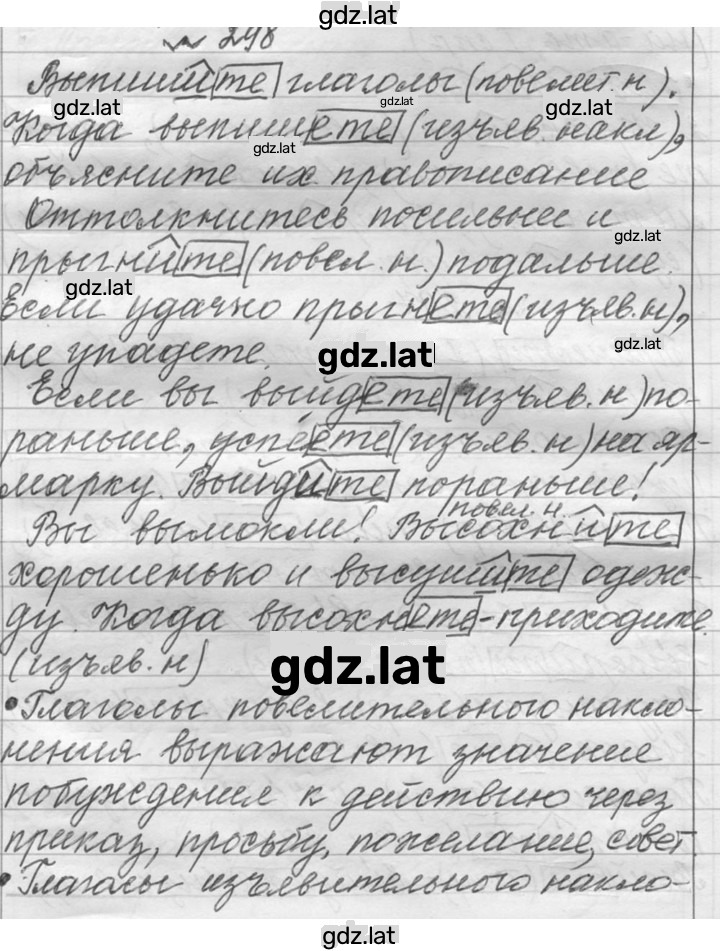 gdz.lat
№ 298
Выпишите глаголы (повелет. н).
gdz.lat gdz.lat gdz.lat
Когда выпишете (изъяв. накл),
gdz.lat
объясните их правописание
Оттолкнитесь посильнее и
gdz.lat
прыгните (повел. н.) подальше.
gdz.lat
Если удачно прыгнете (изъяв. н),
gdz.lat
не упадете.
gdz.lat
Если вы выйдете (изъяв. н) по-
раньше, успеете (изъяв. н) на яр-
марку. Выйдите пораньше!
повел. н.
Вы вымокли! Высохните
хорошенько и высушите одеж-
ду. Когда высохнете - приходите.
(изъяв. н)
gdz.lat
• Глаголы повелительного накло-
нения выражают значение
побуждения к действию через
приказ, просьбу, пожелание, совет.
• Глаголы изъявительного накло-
gdz.lat